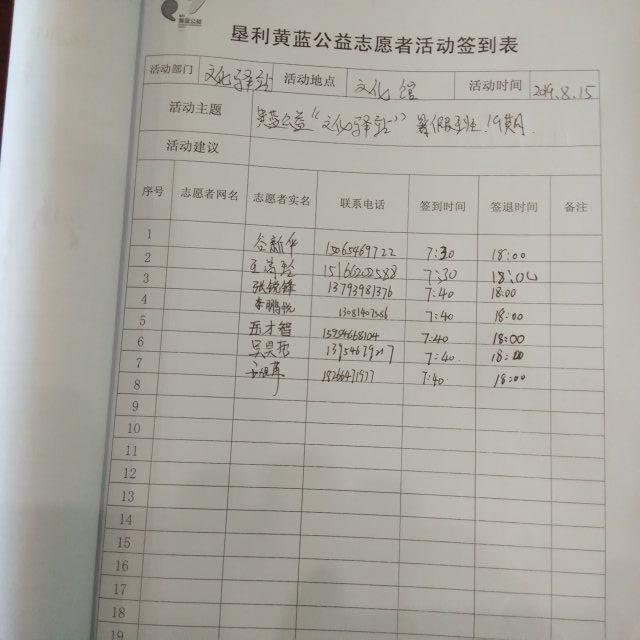 黄蓝公益
垦利黄蓝公益志愿者活动签到表
活动部门 文化驿站 活动地点 文化馆 活动时间 2019.8.15
活动主题 黄蓝公益“文化驿站” 暑假 19期
活动建议
序号 志愿者网名 志愿者实名 联系电话 签到时间 签退时间 备注
1 谷新华 15065469722 7:30 18:00
2 15166202588 7:30 18:00
3 张锐锋 13793981376 7:40 18:00
4 李鹏悦 13081407586 7:40 18:00
5 7:40 18:00
6 7:40 18:00
7 7:40 18:00
8
9
10
11
12
13
14
15
16
17
18
19